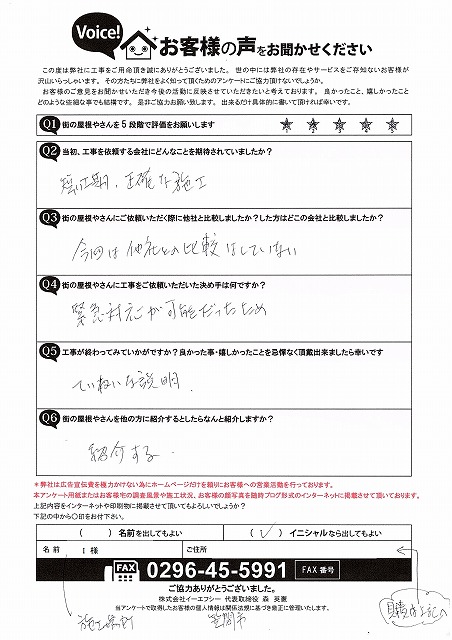 Voice!
お客様の声をお聞かせください
この度は弊社に工事をご用命頂き誠にありがとうございました。 世の中には弊社の存在やサービスをご存知ないお客様が
沢山いらっしゃいます。 その方たちに弊社をよく知って頂くためのアンケートにご協力頂けないでしょうか。
お客様のご意見をお聞かせいただき今後の活動に反映させていただきたいと考えております。 良かったこと、嬉しかったこと
どのような些細な事でも結構です。 是非ご協力お願い致します。 出来るだけ具体的に書いて頂ければ幸いです。
Q1 街の屋根やさんを5段階で評価をお願いします
Q2 当初、工事を依頼する会社にどんなことを期待されていましたか?
短い工期、正確な施工
Q3 街の屋根やさんにご依頼いただく際に他社と比較しましたか?した方はどこの会社と比較しましたか?
今回は他社との比較はしていない
Q4 街の屋根やさんに工事をご依頼いただいた決め手は何ですか?
緊急対応が可能だったため
Q5 工事が終わってみていかがですか?良かった事・嬉しかったことを忌憚なく頂戴出来ましたら幸いです
ていねいな説明.
Q6 街の屋根やさんを他の方に紹介するとしたらなんと紹介しますか?
紹介する.
*弊社は広告宣伝費を極力かけない為にホームページだけを頼りにお客様への営業活動を行っております。
本アンケート用紙またはお客様宅の調査風景や施工状況、お客様の顔写真を随時ブログ形式のインターネットに掲載させて頂いております。
上記内容をインターネットや印刷物に掲載させて頂いてもよろしいでしょうか?
下記の中から〇印をお付下さい。
( ) 名前を出してもよい ( ✓ ) イニシャルなら出してもよい
名前 I 様 ご住所
FAX 0296-45-5991 FAX 番号
ご協力ありがとうございました。
株式会社イーエフシー 代表取締役 森 英憲
当アンケートで取得したお客様の個人情報は関係法規に基づき厳正に管理いたします。
施工場所 笠間市
見積成上記へ